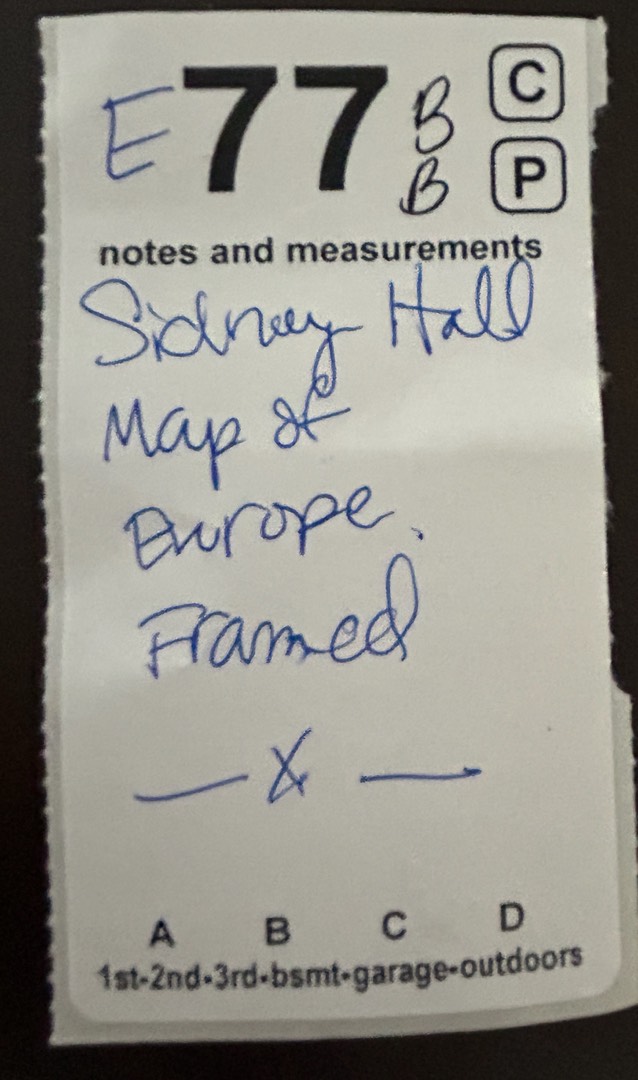 E 77 B C
B P
notes and measurements
Sidney Hall
Map of
Europe.
Framed
— X —
A B C D
1st-2nd-3rd-bsmt-garage-outdoors